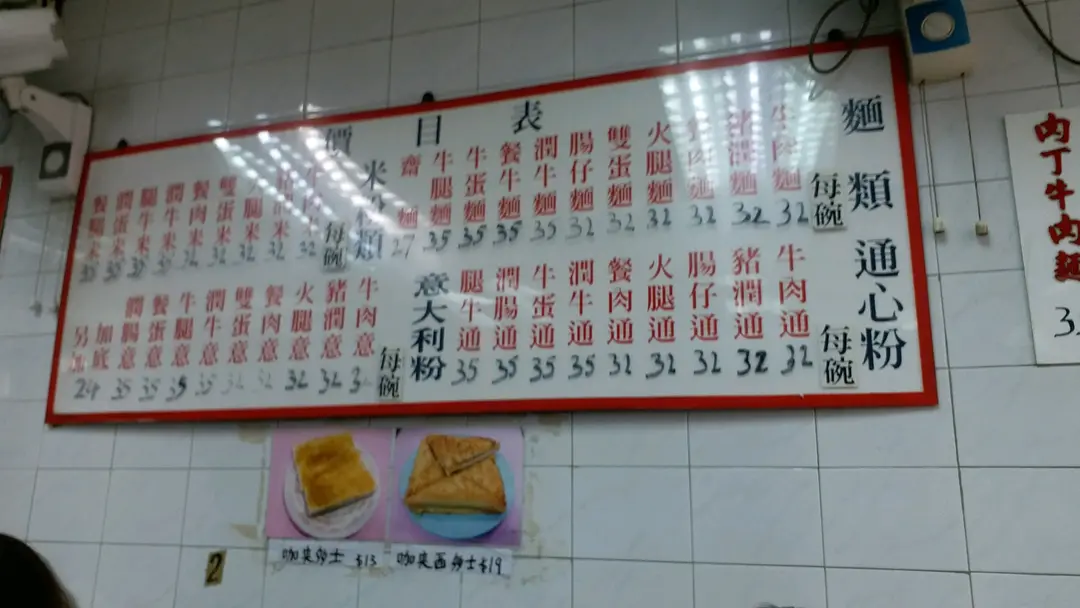 價目表
麵類
每碗
牛肉麵 32
豬潤麵 32
肉麵 32
火腿麵 32
雙蛋麵 32
腸仔麵 32
潤牛麵 35
餐牛麵 35
牛蛋麵 35
牛腿麵 35
齋麵 27
米粉類
每碗
牛肉米 32
潤米 32
腿米 32
雙蛋米 32
餐肉米 32
潤牛米 35
腿牛米 35
潤蛋米 35
餐腿米 35
通心粉
每碗
牛肉通 32
豬潤通 32
腸仔通 32
火腿通 32
餐肉通 32
潤牛通 35
牛蛋通 35
潤腸通 35
腿牛通 35
意大利粉
每碗
牛肉意
豬潤意 32
火腿意 32
餐肉意 32
雙蛋意 32
潤牛意 35
牛腿意 35
餐蛋意 35
潤腸意 35
加底
另加
肉丁牛肉麵
咖央多士 $13
咖央西多士 $19
2